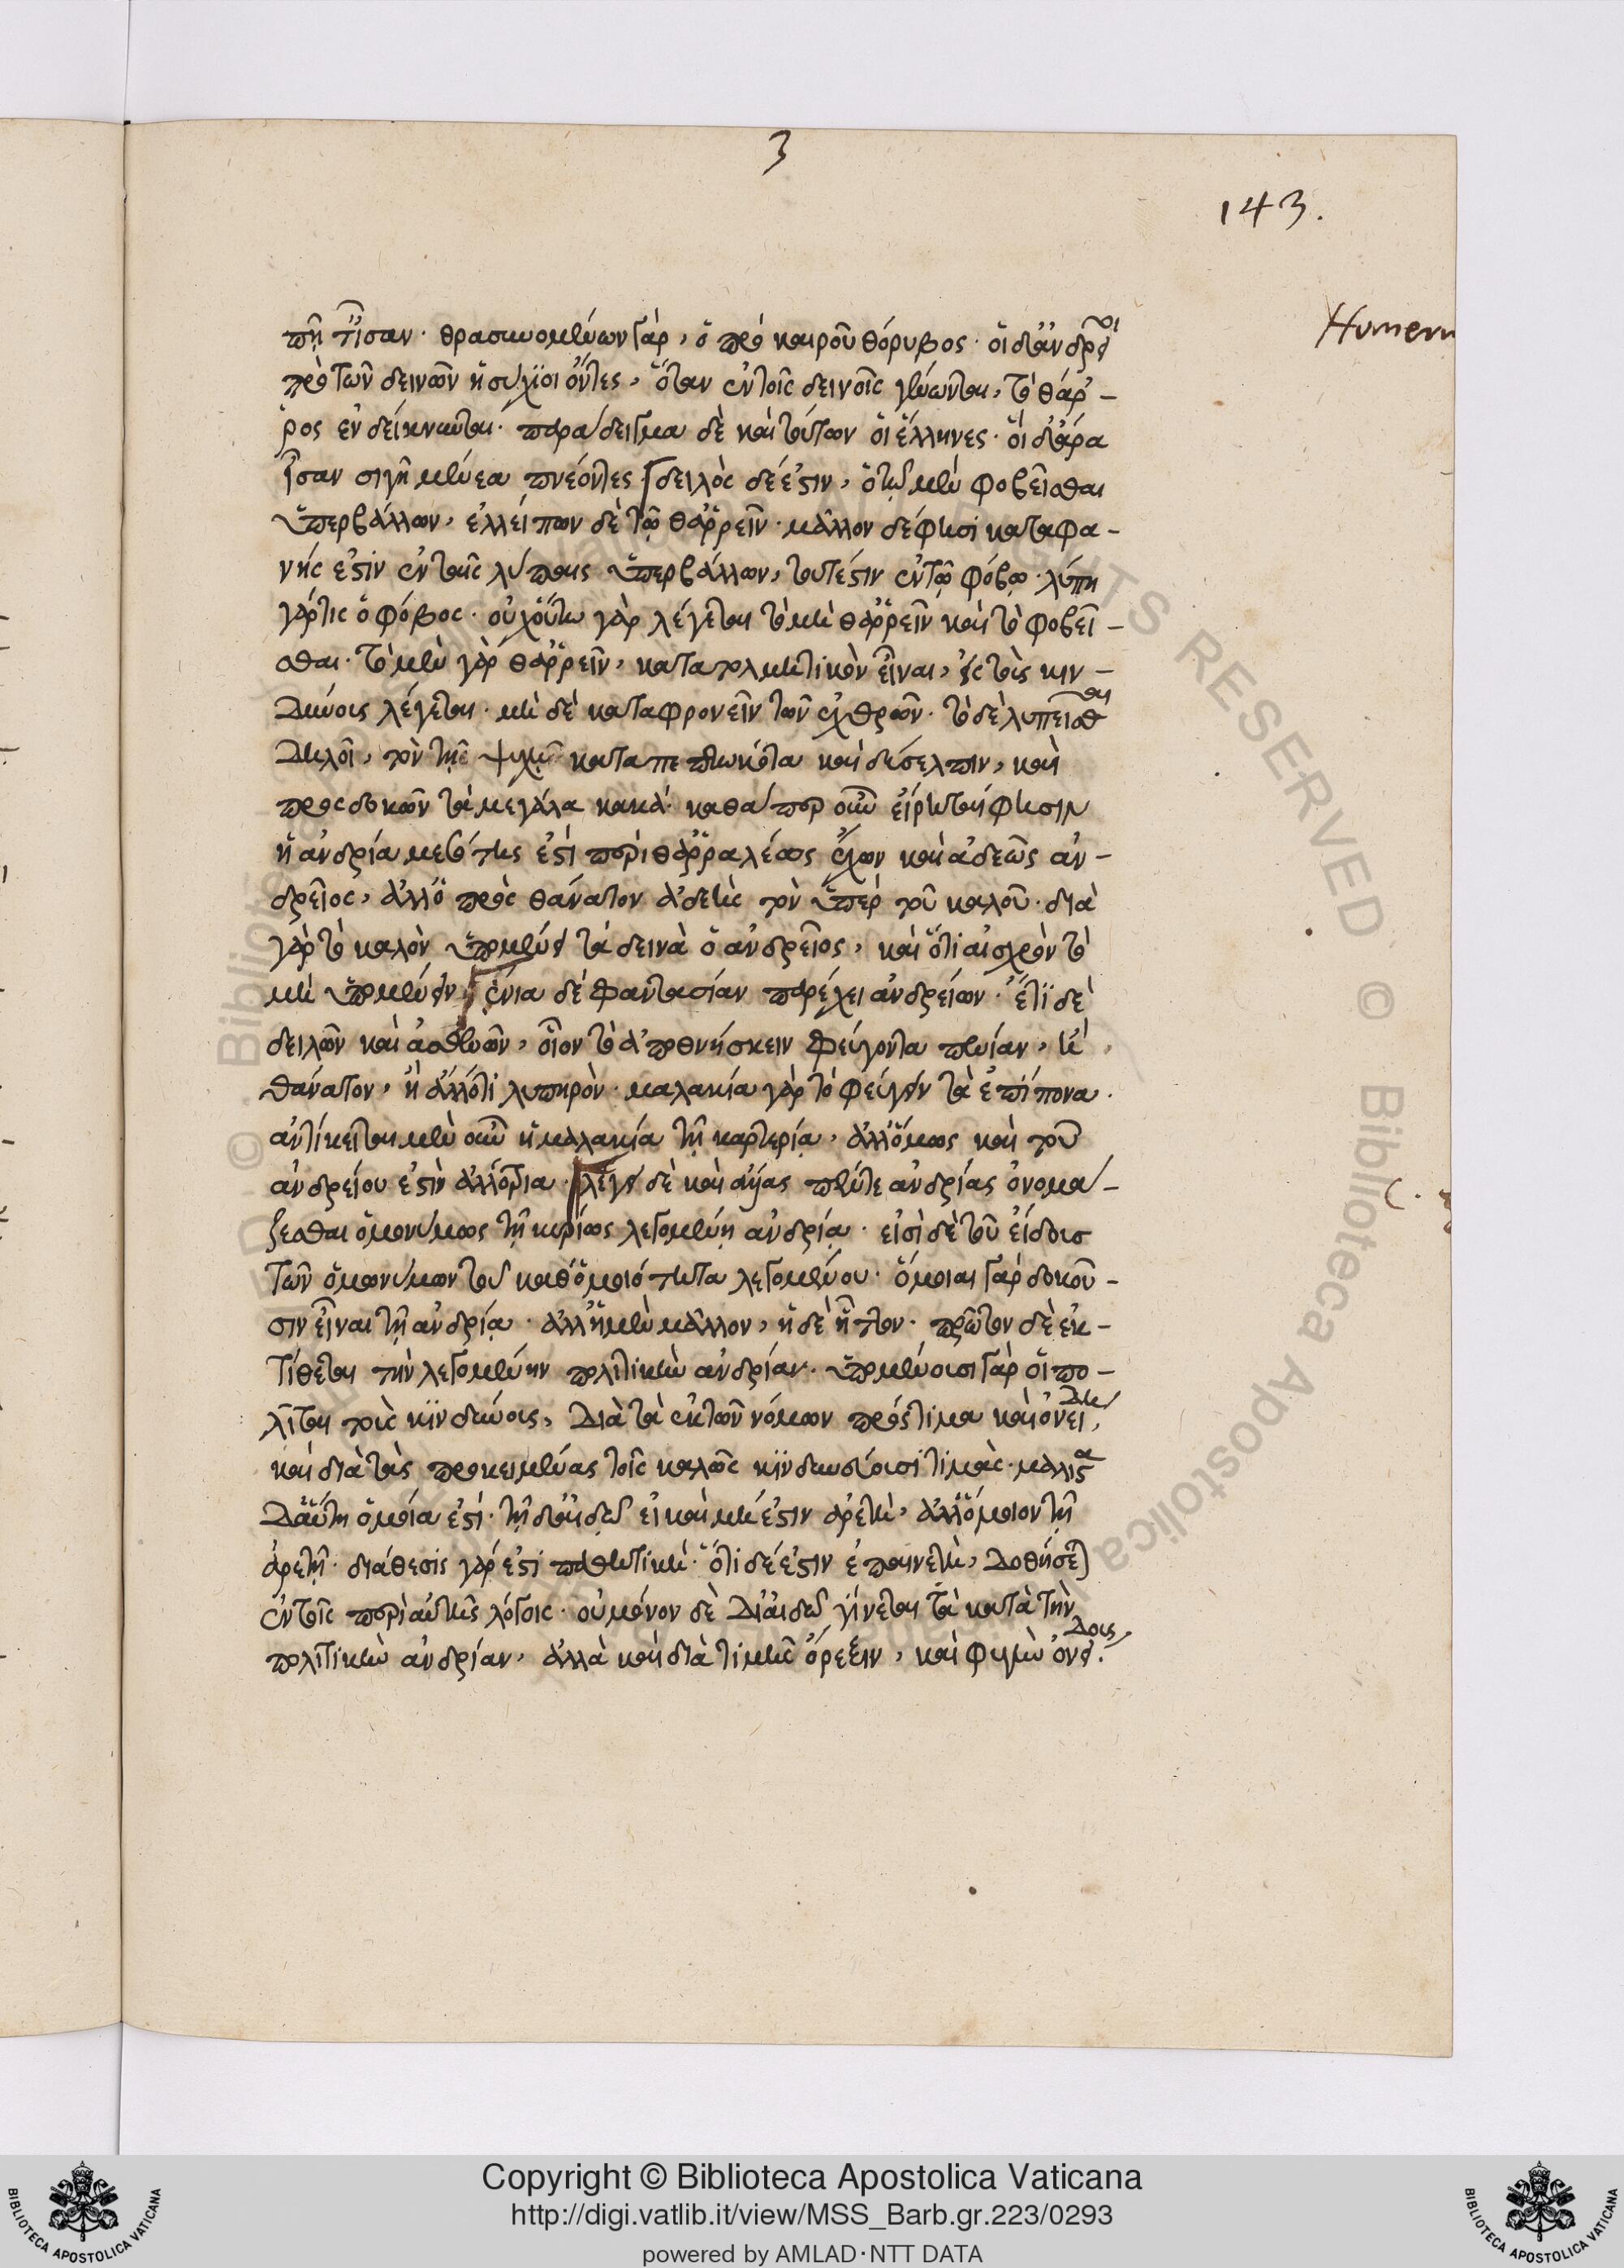 3
143.
Humeru
πῇ πίσαν· θρασυνομένων γὰρ, ὁ πρὸ καιροῦ θόρυβος· οἱ δ' ἀνδρεῖοι
πρὸ τῶν δεινῶν ἡσύχιοι ὄντες, ὅταν ἐν τοῖς δεινοῖς γένωνται, τὸ θάρ-
ρος ἐνδείκνυνται· παράδειγμα δὲ καὶ τούτων οἱ ἕλληνες· οἱ δ' ἄρα
ἴσαν σιγῇ μένεα πνέοντες δειλὸς δέ ἐστιν, ὁ τῷ μὲν φοβεῖσθαι
ὑπερβάλλων, ἐλλείπων δὲ τῷ θαῤῥεῖν· μᾶλλον δέ φησι καταφα-
νής ἐστιν ἐν ταῖς λύπαις ὑπερβάλλων, τουτέστιν ἐν τῷ φόβῳ· λύπη
γάρ τις ὁ φόβος· οὐχ οὕτω γὰρ λέγεται τὸ μὴ θαῤῥεῖν καὶ τὸ φοβεῖ-
σθαι· τὸ μὲν γὰρ θαῤῥεῖν, καταπληκτικὸν εἶναι, ἐς τοὺς κιν-
δύνοις λέγεται· μὴ δὲ καταφρονεῖν τῶν ἐχθρῶν· τὸ δὲ λυπεῖσθαι
δηλοῖ, τὸν τῆς ψυχῆς καταπεπτωκότα καὶ δύσελπιν, καὶ
προσδοκῶν τὰ μεγάλα κακά· καθάπερ οὖν εἴρηται φησιν
ἡ ἀνδρία μεσότης ἐστὶ περὶ θαῤῥαλέως ἔχων καὶ ἀδεῶς ἀν-
δρεῖος, ἀλλ' ὁ πρὸς θάνατον ἀδεὴς τὸν ὑπὲρ τοῦ καλοῦ· διὰ
γὰρ τὸ καλὸν ὑπομένει τὰ δεινὰ ὁ ἀνδρεῖος, καὶ ὅτι αἰσχρὸν τὸ
μὴ ὑπομένειν ἔνια δὲ φαντασίαν παρέχει ἀνδρείων· ἔτι δὲ
δειλῶν καὶ ἀσθενῶν, οἷον τὸ ἀποθνήσκειν φεύγοντα πενίαν, ἢ
θάνατον, ἢ ἄλλό τι λυπηρὸν· μαλακία γὰρ τὸ φεύγειν τὰ ἐπίπονα·
ἀντίκειται μὲν οὖν ἡ μαλακία τῇ καρτερίᾳ, ἀλλ' ὅμως καὶ τοῦ
ἀνδρείου ἐστὶν ἀλλότρια· λέγει δὲ καὶ ἄλλας πέντε ἀνδρίας ὀνομά-
ζεσθαι ὁμωνύμως τῇ κυρίως λεγομένῃ ἀνδρίᾳ· εἰσὶ δὲ τοῦ εἴδους
τῶν ὁμωνύμων τοῦ καθ' ὁμοιότητα λεγομένου· ὅμοιαι γὰρ δοκοῦ-
σιν εἶναι τῇ ἀνδρίᾳ· ἀλλ' ἡ μὲν μᾶλλον, ἡ δὲ ἧττον· πρῶτον δὲ ἐκ-
τίθεται τὴν λεγομένην πολιτικὴν ἀνδρίαν· ὑπομένουσι γὰρ οἱ πο-
λῖται τοὺς κινδύνοις, διὰ τὰ ἐκ τῶν νόμων πρόστιμα καὶ ὀνείδη,
καὶ διὰ τὰς προκειμένας τοῖς καλῶς κινδυνεύουσι τιμὰς· μάλιστα
δ' αὕτη ὁμοία ἐστί· τῇ δι' αἰδῶ εἰ καὶ μή ἐστιν ἀρετὴ, ἀλλ' ὅμοιον τῇ
ἀρετῇ· διάθεσις γάρ ἐστι παθητική· ὅτι δέ ἐστιν ἐπαινετὴ, δοθήσεται
ἐν τοῖς περὶ αὐτῆς λόγοις· οὐ μόνον δὲ δι' αἰδῶ γίνεται τὰ κατὰ τὴν
πολιτικὴν ἀνδρίαν, ἀλλὰ καὶ διὰ τιμῆς ὄρεξιν, καὶ φυγὴν ὀνείδους.
Copyright © Biblioteca Apostolica Vaticana
http://digi.vatlib.it/view/MSS_Barb.gr.223/0293
powered by AMLAD·NTT DATA